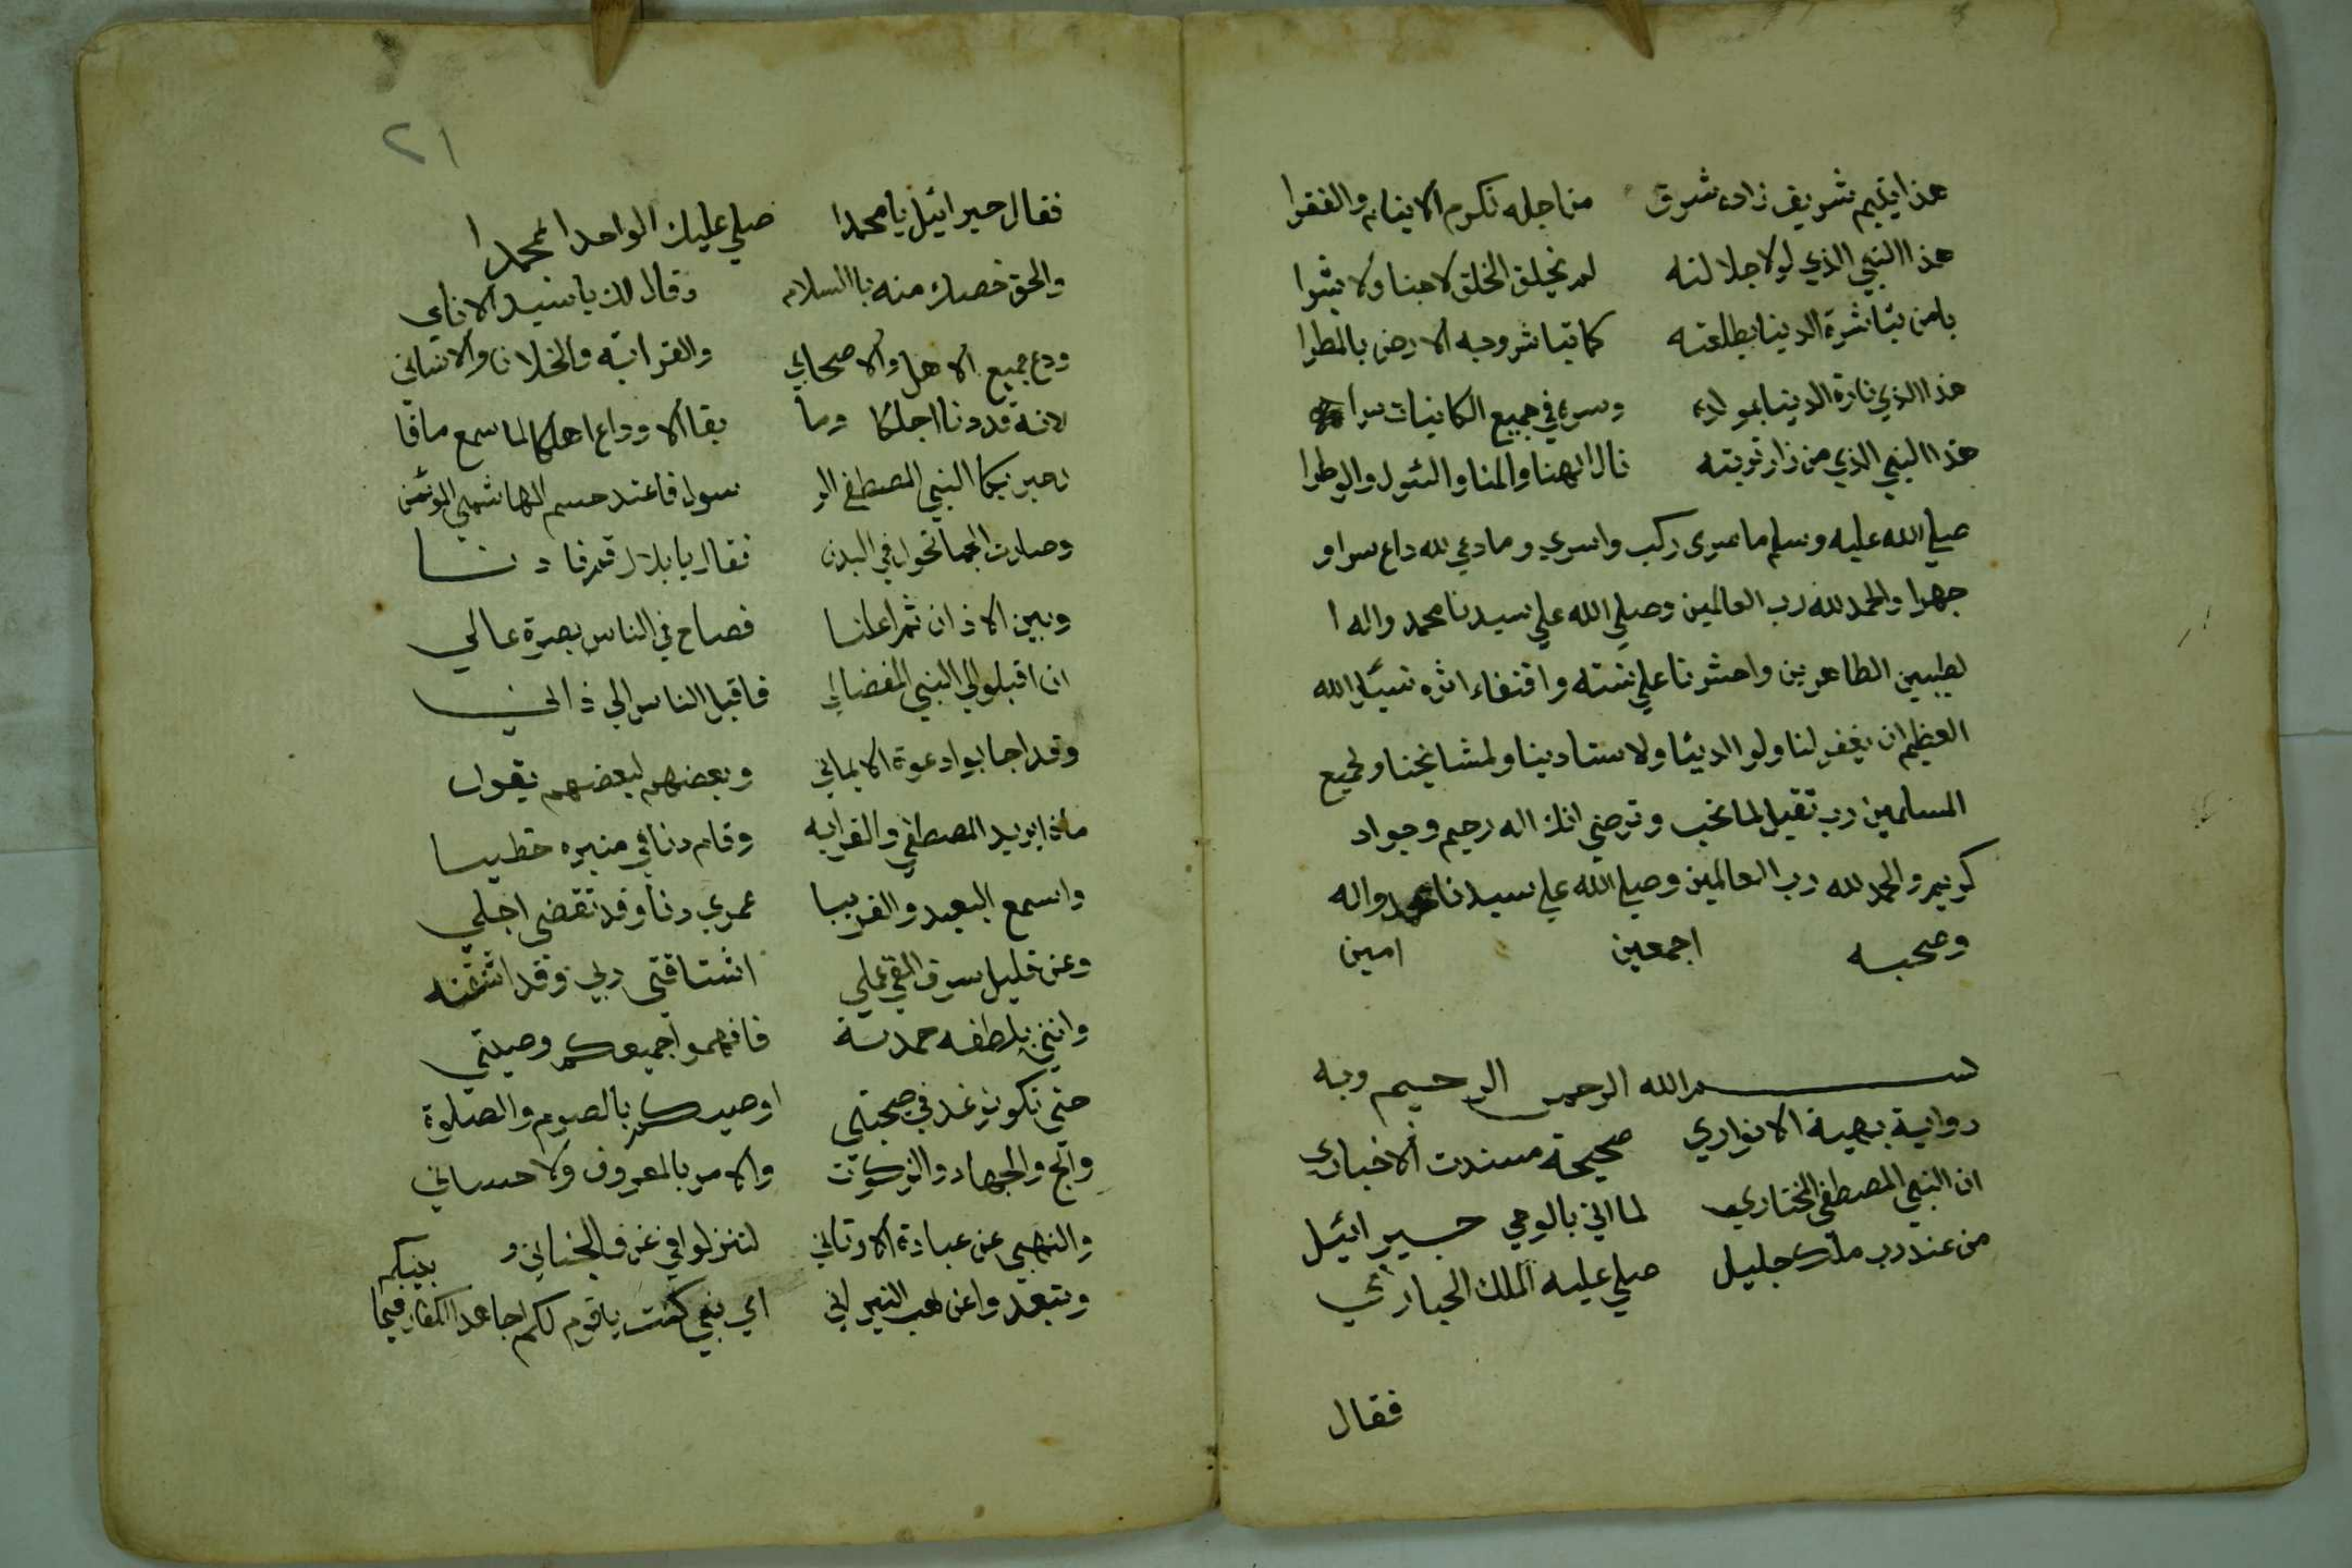 هذا يتيم شريف زاده شرق من اجله نكرم الايتام والفقرا
هذا النبي الذي لولا جلالته لم يخلق الخلق لا جنا ولا بشرا
يا من تباشرة الدنيا بطلعته كما تباشر وجه الارض بالمطرا
هذا الذي نارة الدنيا بمولده وسره في جميع الكاينات سرا
هذا النبي الذي من زار تربته نال الهنا والمنا والسول والوطرا
صلي الله عليه وسلم ما سرى ركب واسري وما دعي لله داع سرا و
جهرا والحمد لله رب العالمين وصلي الله علي سيدنا محمد واله ا
لطيبين الطاهرين واحشرنا علي سنته واقتفاء اثره نسئل الله
العظيم ان يغفر لنا ولوالدينا ولاستادينا ولمشايخنا ولجميع
المسلمين رب تقبل لما تحب وترضي انك اله رحيم وجواد
كريم والحمد لله رب العالمين وصلي الله علي سيدنا محمد واله
وصحبه اجمعين امين
بسم الله الرحمن الرحيم وبه
رواية بهية الانواري صحيحة مسندت الاخباري
ان النبي المصطفي المختاري لما اتي بالوحي جبرائيل
من عند رب ملك جليل صلي عليه الملك الجباري
فقال
٢١
فقال جبرائيل يا محمدا صلي عليك الواحد الممجدا
والحق خصك منه باالسلام وقال لك يا سيد الانامي
ودع جميع الاهل والاصحابي والقرابة والخلان والانسابي
لانه قد دنا اجلكا وما بقا الا وداع اهلكا لما سمع ما قا
ل جبريكا النبي المصطفي الر سول فاعتد جسم الهاشمي المؤتمن
وصارت الحما تحول في البدن فقال يا بلال قم فا د ننا
وبين الاذان ثم اعلنا فصاح في الناس بصوة عالي
ان اقبلو الي النبي المفضالي فاقبل الناس الي ذالني
وقد اجابوا دعوة الايماني وبعضهم لبعضهم يقول
ماذا يريد المصطفي والقرايه وقام دنا في منبره خطيبا
واسمع البعيد والقريبا عمري دنا وقد تقضى اجلي
وعن قليل سوف القي عملي اشتاقني ربي وقد اشتقته
وانني بلطفه حمدته فافهموا جميعكم وصيتي
حتي تكون غد في صحبتي اوصيكم بالصوم والصلوة
والحج والجهاد والزكوت والامر بالمعروف ولاحساني
والنهي عن عبادة الاوثاني لتنزلوا في غرف الجناني و
وتبعدوا عن لهب النيراني اي نبي كنت يا قوم لكم اجاهد الكفار فيما
بينكم